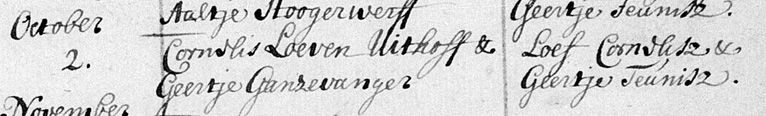 Aaltje Hoogerwerff Geertje Teunisz.
October
Cornelis Loeven Uithoff & Loef Cornelisz &
2.
Geertje Ganzevanger Geertje Teunisz.
November